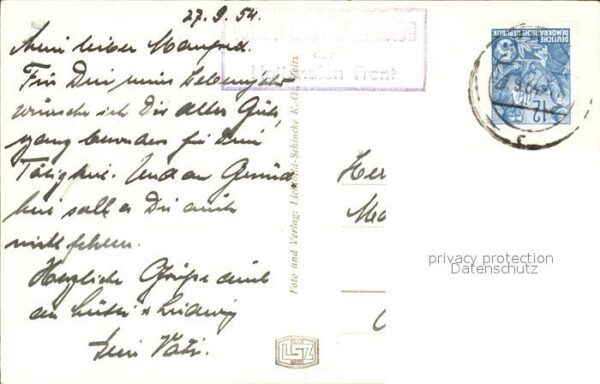 27.9.54.
Mein lieber Manfred.
Für Dein neues Lebensjahr
wünsche ich Dir alles Gute,
ganz besonders für Deine
Tätigkeit. Und an Gesund
heit soll es Dir auch
nicht fehlen.
Herzliche Grüße auch
an Ludwig
Dein Vati.
Nationalen Front
Foto und Verlag:
Her
DEUTSCHE
DEMOKRATISCHE REPUBLIK
12
privacy protection
Datenschutz